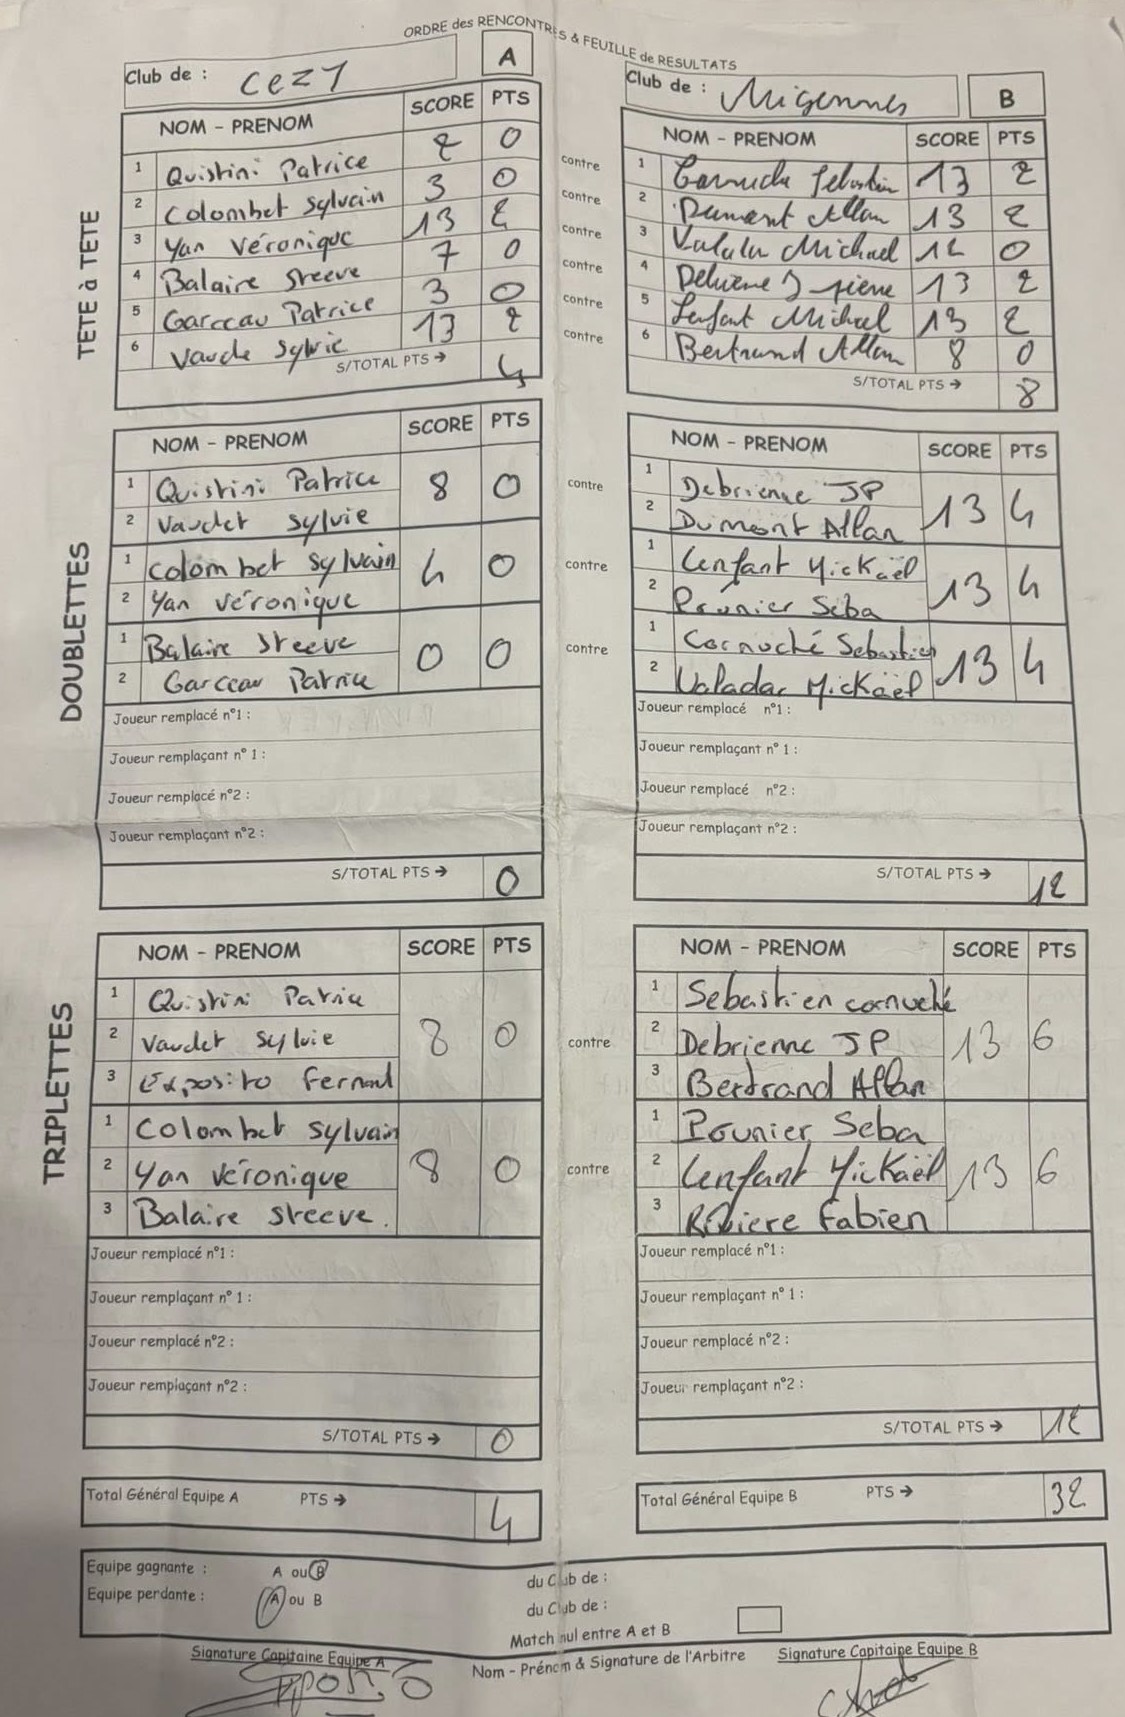 ORDRE des RENCONTRES & FEUILLE de RESULTATS
Club de : Cezy A
NOM - PRENOM SCORE PTS
1 Quistini Patrice 2 0
2 Colombet Sylvain 3 0
3 Yan Véronique 13 2
4 Balaire Steeve 7 0
5 Garceau Patrice 3 0
6 Vaude Sylvie 13 2
S/TOTAL PTS → 4
TETE à TETE
contre
contre
contre
contre
contre
contre
Club de : Migennes B
NOM - PRENOM SCORE PTS
1 Sebastien 13 2
2 Dumont Allan 13 2
3 Michael 12 0
4 13 2
5 Lenfant Michael 13 2
6 Bertrand Allan 8 0
S/TOTAL PTS → 8
DOUBLETTES
NOM - PRENOM SCORE PTS
1 Quistini Patrice 8 0
2 Vaudet Sylvie
1 Colombet Sylvain 4 0
2 Yan Véronique
1 Balaire Steeve 0 0
2 Garceau Patrice
Joueur remplacé n°1 :
Joueur remplaçant n° 1 :
Joueur remplacé n°2 :
Joueur remplaçant n°2 :
S/TOTAL PTS → 0
contre
contre
contre
NOM - PRENOM SCORE PTS
1 Debrienne JP 13 4
2 Dumont Allan
1 Lenfant Mickaël 13 4
2 Prunier Seba
1 Cornuché Sebastien 13 4
2 Valadar Mickaël
Joueur remplacé n°1 :
Joueur remplaçant n° 1 :
Joueur remplacé n°2 :
Joueur remplaçant n°2 :
S/TOTAL PTS → 12
TRIPLETTES
NOM - PRENOM SCORE PTS
1 Quistini Patrice
2 Vaudet Sylvie 8 0
3 Exposito Fernand
1 Colombet Sylvain
2 Yan Véronique 8 0
3 Balaire Steeve.
Joueur remplacé n°1 :
Joueur remplaçant n° 1 :
Joueur remplacé n°2 :
Joueur remplaçant n°2 :
S/TOTAL PTS → 0
contre
contre
NOM - PRENOM SCORE PTS
1 Sebastien cornuché
2 Debrienne JP 13 6
3 Bertrand Allan
1 Prunier Seba
2 Lenfant Mickaël 13 6
3 Riviere Fabien
Joueur remplacé n°1 :
Joueur remplaçant n° 1 :
Joueur remplacé n°2 :
Joueur remplaçant n°2 :
S/TOTAL PTS → 12
Total Général Equipe A PTS → 4
Total Général Equipe B PTS → 32
Equipe gagnante : A ou B du Club de :
Equipe perdante : A ou B du Club de :
Match nul entre A et B
Signature Capitaine Equipe A
Nom - Prénom & Signature de l'Arbitre
Signature Capitaine Equipe B